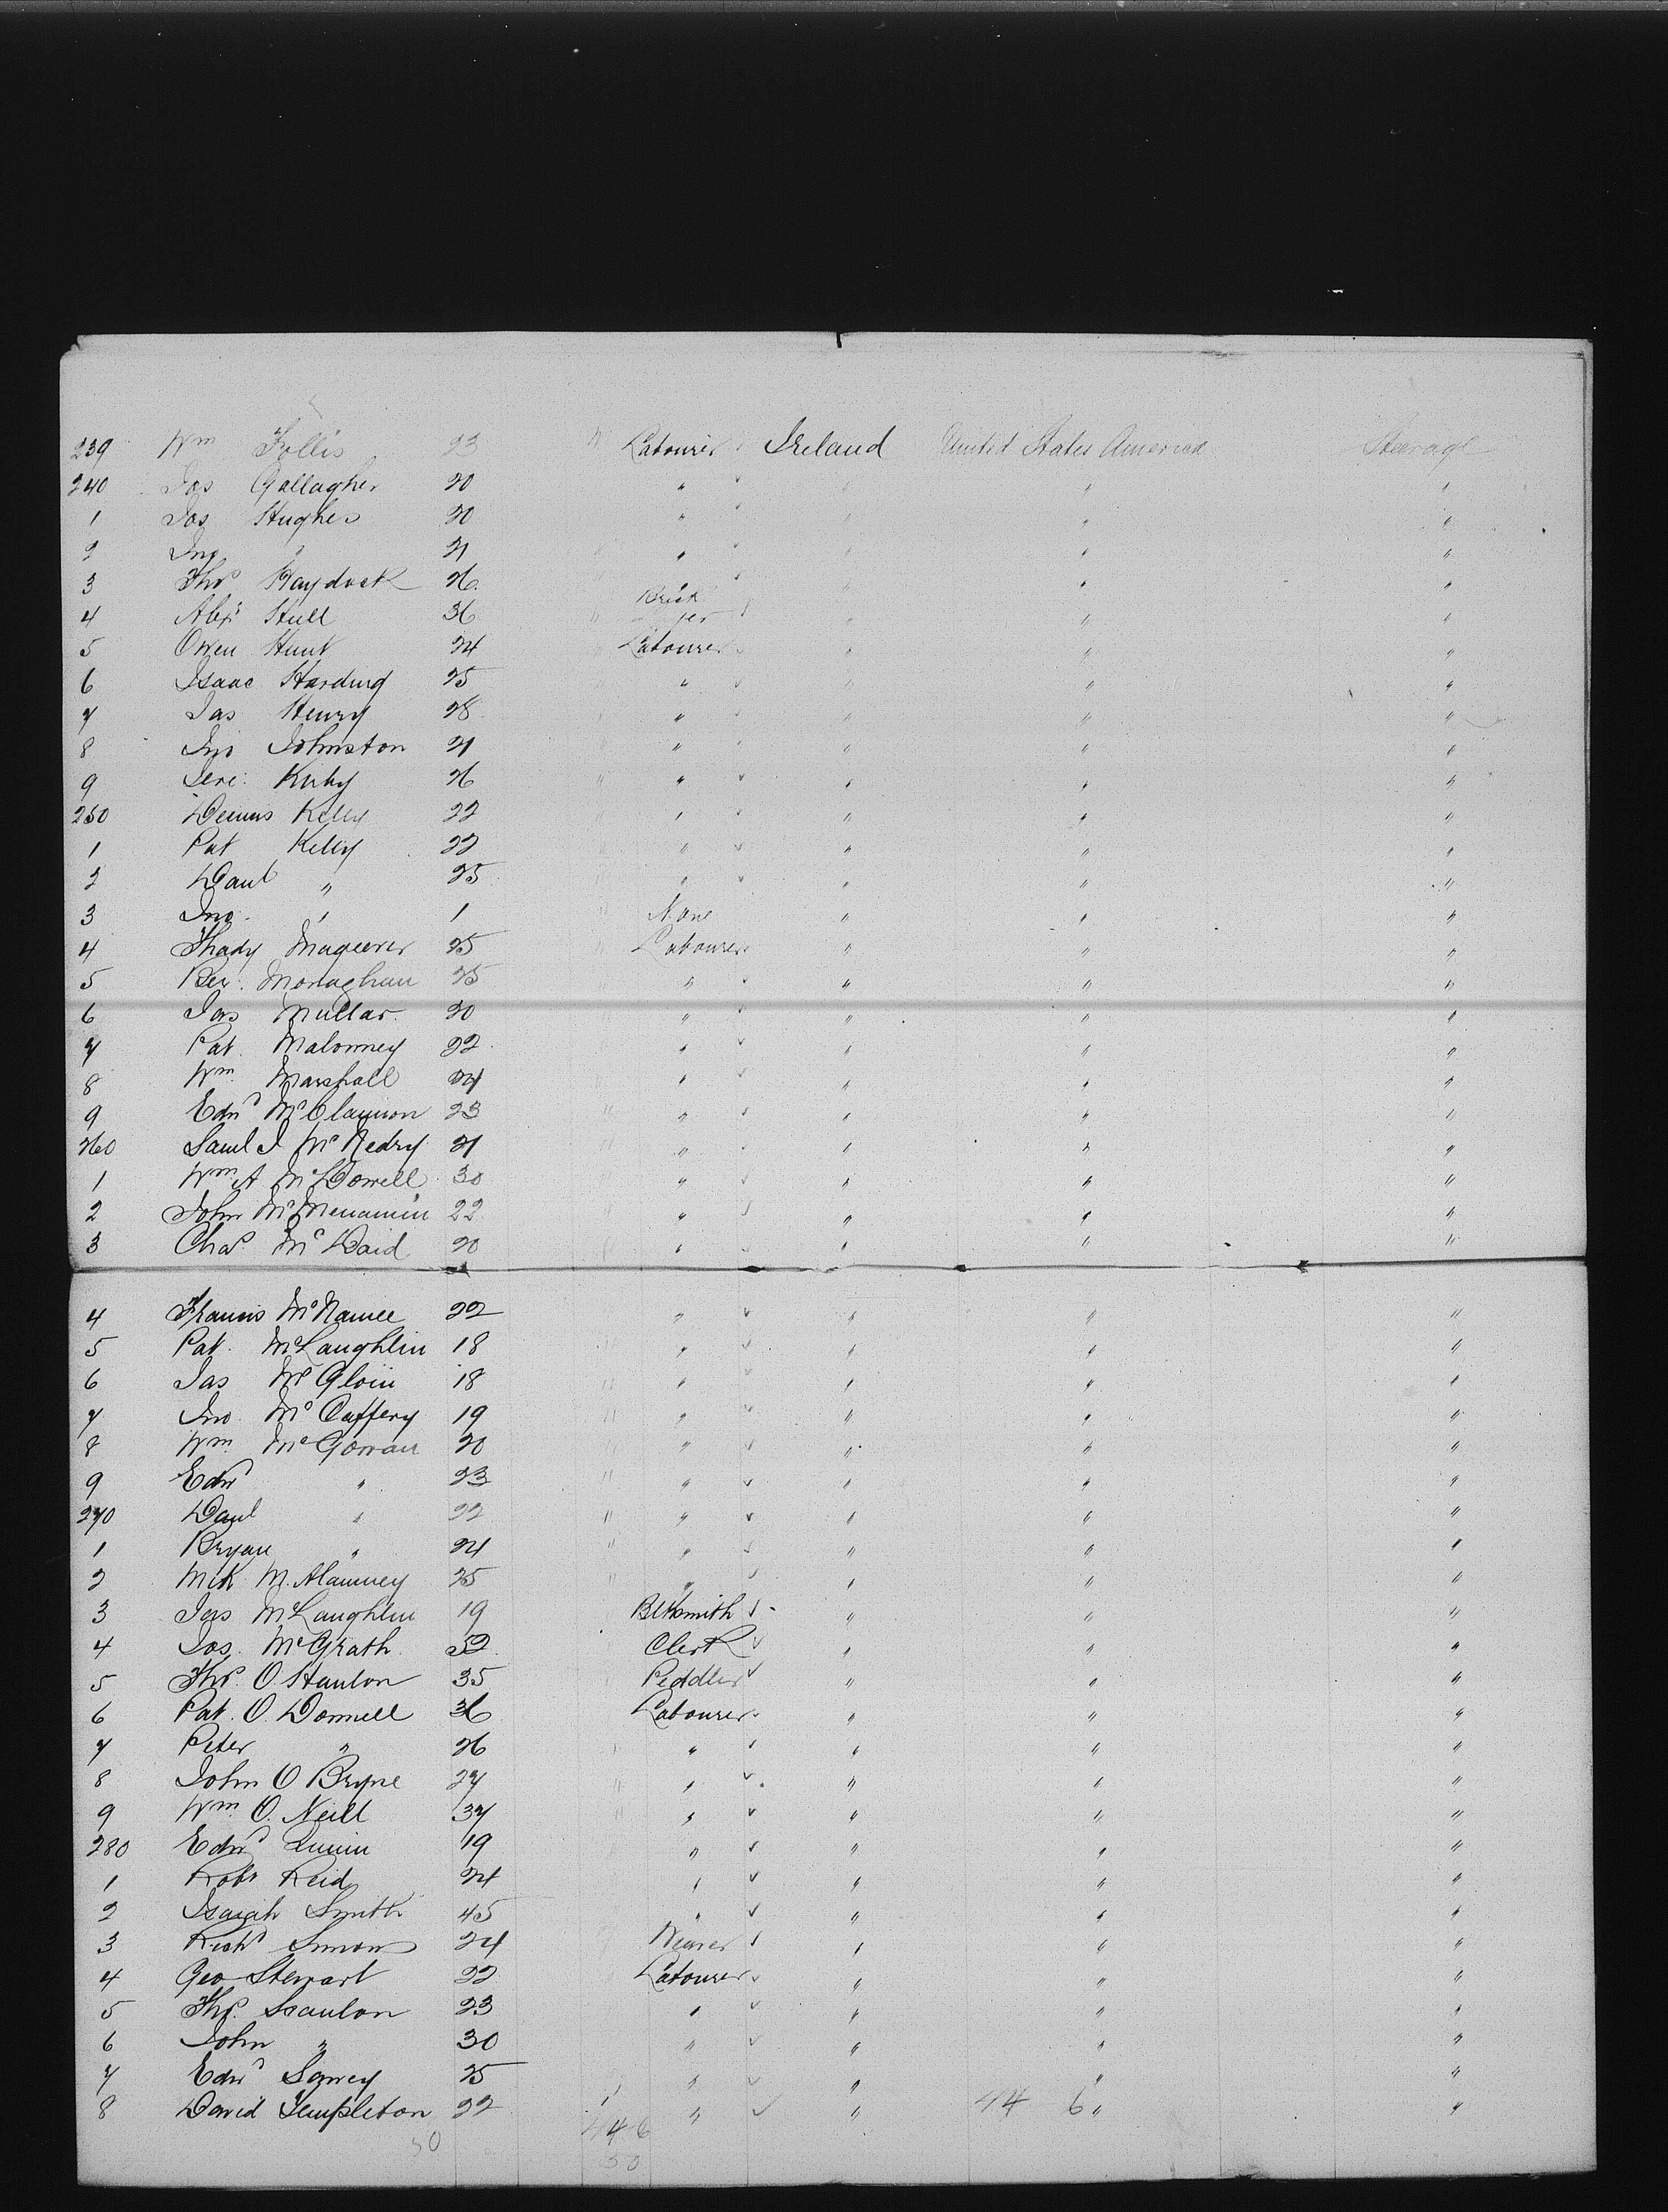 239 Wm Follis 23 " Labourer Ireland United States America Steerage
240 Jas Gallagher 20 " " " "
1 Jas Hughes 20 " " " "
2 Jno " 21 " " " "
3 Thos Haydock 26 " " " "
4 Alexr Hull 36 " Brick layer " " "
5 Owen Hunt 24 Labourer " " "
6 Isaac Harding 25 " " " "
7 Jas Henry 28 " " " "
8 Jno Johnston 21 " " " "
9 Jere: Kirby 26 " " " " "
250 Dennis Kelly 22 " " " "
1 Pat Kelly 22 " " " "
2 Danl " 25 " " " " "
3 Jno. " 1 " None " " "
4 Thady 25 " Labourer " " "
5 Ber. Monaghan 25 " " " " "
6 Jas Mullar. 20 " " " "
7 Pat. Malonney 22 " " " "
8 Wm Marshall 24 " " " "
9 Edwd McClannon 23 " " " " "
260 Saml J McNedry 21 " " " " "
1 Wm A McDowell 30 " " " " "
2 John McMenamin 22 " " " " "
3 Chas McDaid 20 " " " " "
4 Francis McNamee 22 " " " "
5 Pat. McLaughlin 18 " " " " "
6 Jas McGloin 18 " " " " "
7 Jno. McCaffery 19 " " " " "
8 Wm McGowan 20 " " " " "
9 Edwd " 23 " " " " "
270 Danl " 22 " " " " "
1 Bryan " 24 " " " " "
2 Mick 25 " " " " "
3 Jas McLaughlin 19 Blksmith " " "
4 Jos. McGrath 52 Clerk " " "
5 Thos. O Hanlon 35 Peddler " " "
6 Pat. O. Donnell 36 Labourer " " "
7 Peter " 26 " " " " "
8 John O Bryne 27 " " " " "
9 Wm. O. Neill 37 " " " " "
280 Edwd Quinn 19 " " " "
1 Robt Reid 24 " " " "
2 Isaiah Smith 45 " " " "
3 Richd Simons 24 Weaver " " "
4 Geo Stewart 22 Labourer " " "
5 Thos. Scanlon 23 " " " "
6 John " 30 " " " "
7 Edwd 25 " " " " "
8 David Templeton 22 " " " 44 6 " "
50 446
50